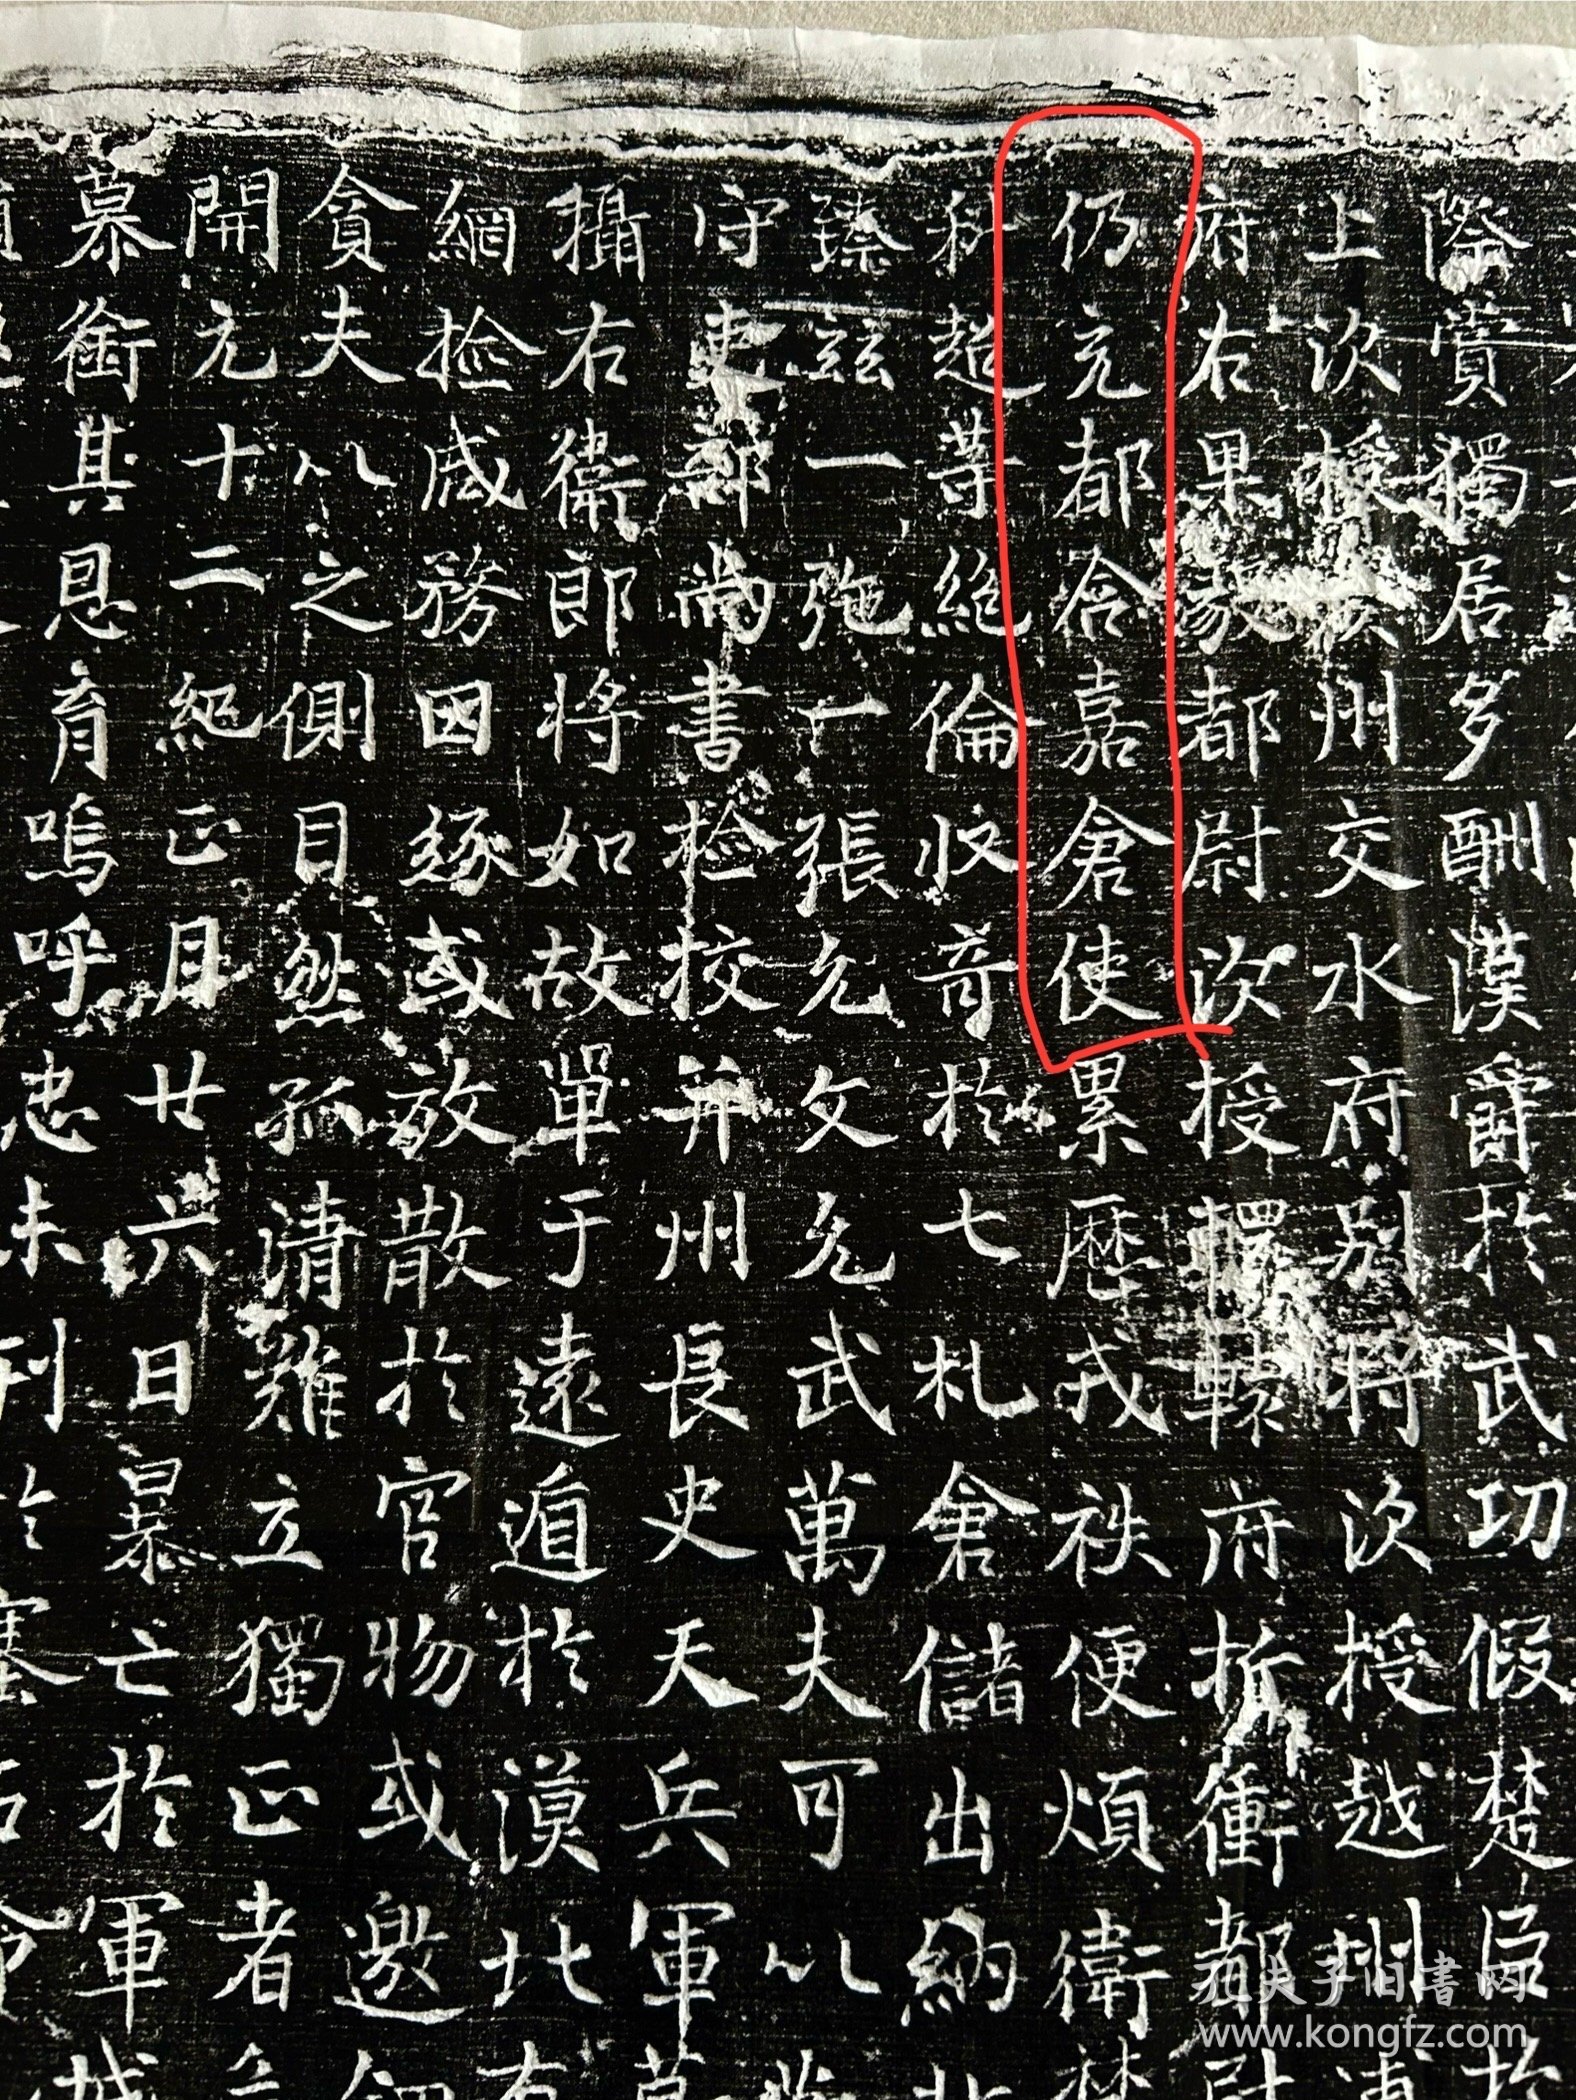 際賞獨居多酬漢爵於武功假楚臣
上次授州交水府別將次授越州
府右果毅都尉次授轘轅府折衝都尉
仍充都含嘉倉使累歷戎祑便煩衛
秘超等絕倫收奇於七札倉儲出納
臻茲一弛一張允文允武萬夫可以
守吏部尚書檢校并州長史天兵軍
攝右衛郎將如故單于遠遁於漠北
網捡咸務因緣或散散於官物或邀
貪夫以之側目然孤清難立獨正者
開元十二紀正月廿六日暴亡於軍
慕銜其恩育嗚呼忠未刊於塞
孔夫子旧书网
www.kongfz.com